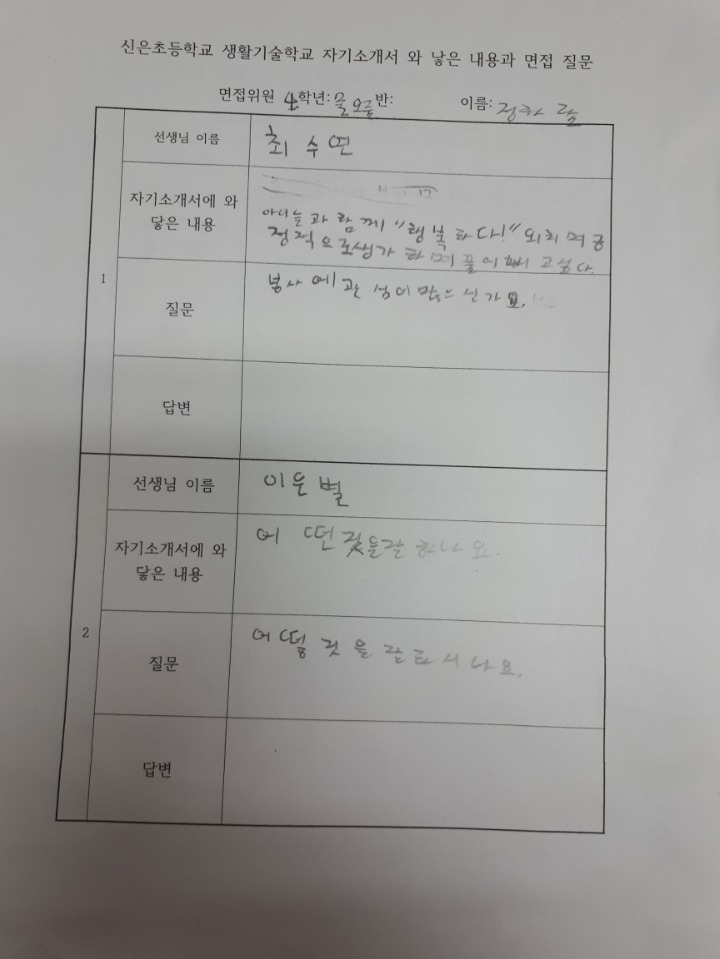 신은초등학교 생활기술학교 자기소개서 와 낳은 내용과 면접 질문
면접위원 4학년: 물오름반: 이름: 정하람
1
선생님 이름
최수연
자기소개서에 와
닿은 내용
아이들과 함께 "행복하다!" 외치며 긍
정적으로생각 하며 싶다.
질문
봉사에관심이많으신가요.
답변
2
선생님 이름
이은별
자기소개서에 와
닿은 내용
어떤것을잘하나요.
질문
어떻것을잘하시나요.
답변